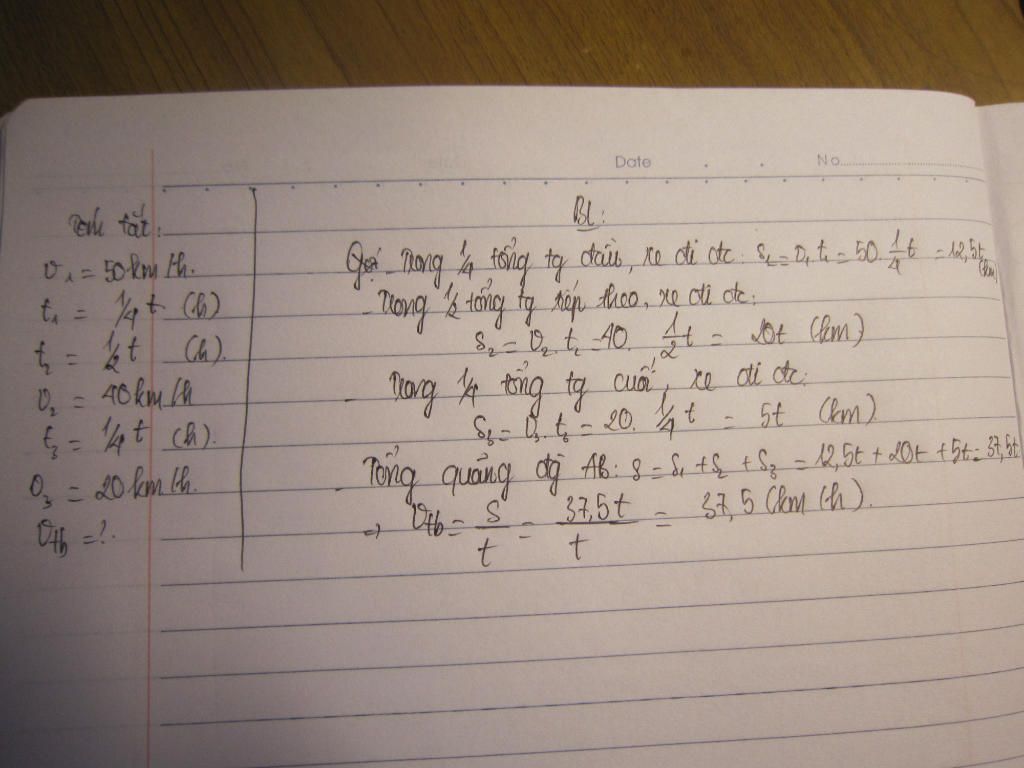 Date No
Tóm tắt:
v₁ = 50km/h.
t₁ = 1/4 t (h)
t₂ = 1/2 t (h).
v₂ = 40km/h
t₃ = 1/4 t (h).
v₃ = 20km/h.
vtb = ?
BL:
- Trong 1/4 tổng tg đầu, xe đi đc: s₁ = v₁ t₁ = 50. 1/4 t = 12,5t (km)
- Trong 1/2 tổng tg tiếp theo, xe đi đc:
s₂ = v₂. t₂ = 40. 1/2 t = 20t (km)
- Trong 1/4 tổng tg cuối, xe đi đc:
s₃ = v₃. t₃ = 20. 1/4 t = 5t (km)
- Tổng quảng đg AB: s = s₁ + s₂ + s₃ = 12,5t + 20t + 5t = 37,5t
=> vtb = s/t = 37,5t/t = 37,5 (km/h).